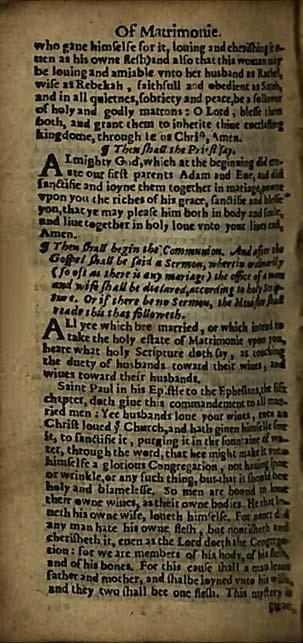 Of Matrimonie.
who gaue himselfe for it, louing and cherishing it e-
uen as his owne flesh) and also that this woman may
be louing and amiable vnto her husband as Rachel,
wise as Rebekah, faithfull and obedient as Sarah,
and in all quietnes, sobriety and peace, be a follower
of holy and godly matrons: O Lord, blesse them
both, and grant them to inherite thine euerlasting
kingdome, through Ie us Christ, Amen.
¶ Then shall the Priest say.
ALmighty God, which at the beginning did cre-
ate our first parents Adam and Eue, and did
sanctifie and ioyne them together in mariage, powre
vpon you the riches of his grace, sanctifie and blesse
you, that ye may please him both in body and soule,
and liue together in holy loue vnto your liues end,
Amen.
¶ Then shall begin the Communion. And after the
Gospel shall be said a Sermon, wherein ordinarily
(so oft as there is any mariage) the office of a man
and wife shall be declared, according to holy Scrip-
ture. Or if there be no Sermon, the Minister shall
reade this that followeth.
ALl yee which bee married, or which intend to
take the holy estate of Matrimonie vpon you,
heare what holy Scripture doth say, as touching
the duety of husbands toward their wiues, and
wiues toward their husbands.
Saint Paul in his Epistle to the Ephesians, the fift
chapter, doth giue this commandement to all mar-
ried men: Yee husbands loue your wiues, euen as
Christ loued yͤ Church, and hath giuen himselfe for
it, to sanctifie it, purging it in the fountaine of wa-
ter, through the word, that hee might make it vnto
himselfe a glorious Congregation, not hauing spot
or wrinkle, or any such thing, but that it should bee
holy and blamelesse. So men are bound to loue
their owne wiues, as their owne bodies. He that lo-
ueth his owne wife, loueth himselfe. For neuer did
any man hate his owne flesh, but nourisheth and
cherisheth it, euen as the Lord doeth the Congrega-
tion: for we are members of his body, of his flesh,
and of his bones. For this cause shall a man leaue
father and mother, and shalbe ioyned vnto his wife,
and they two shall bee one flesh. This mystery is
great